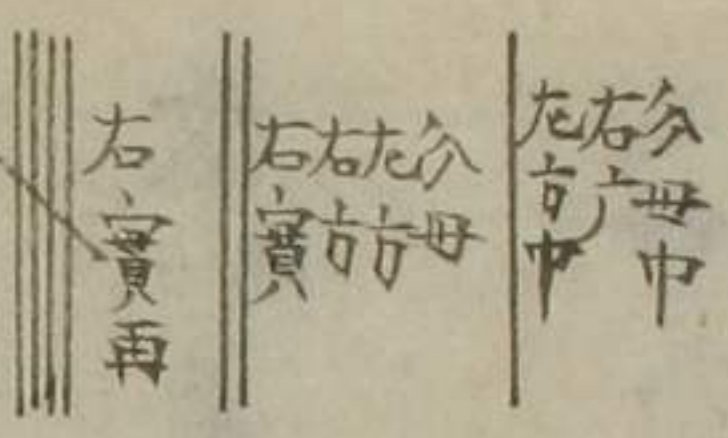 分母巾
右方
左方巾
分母
左方
右方
右實
右實再